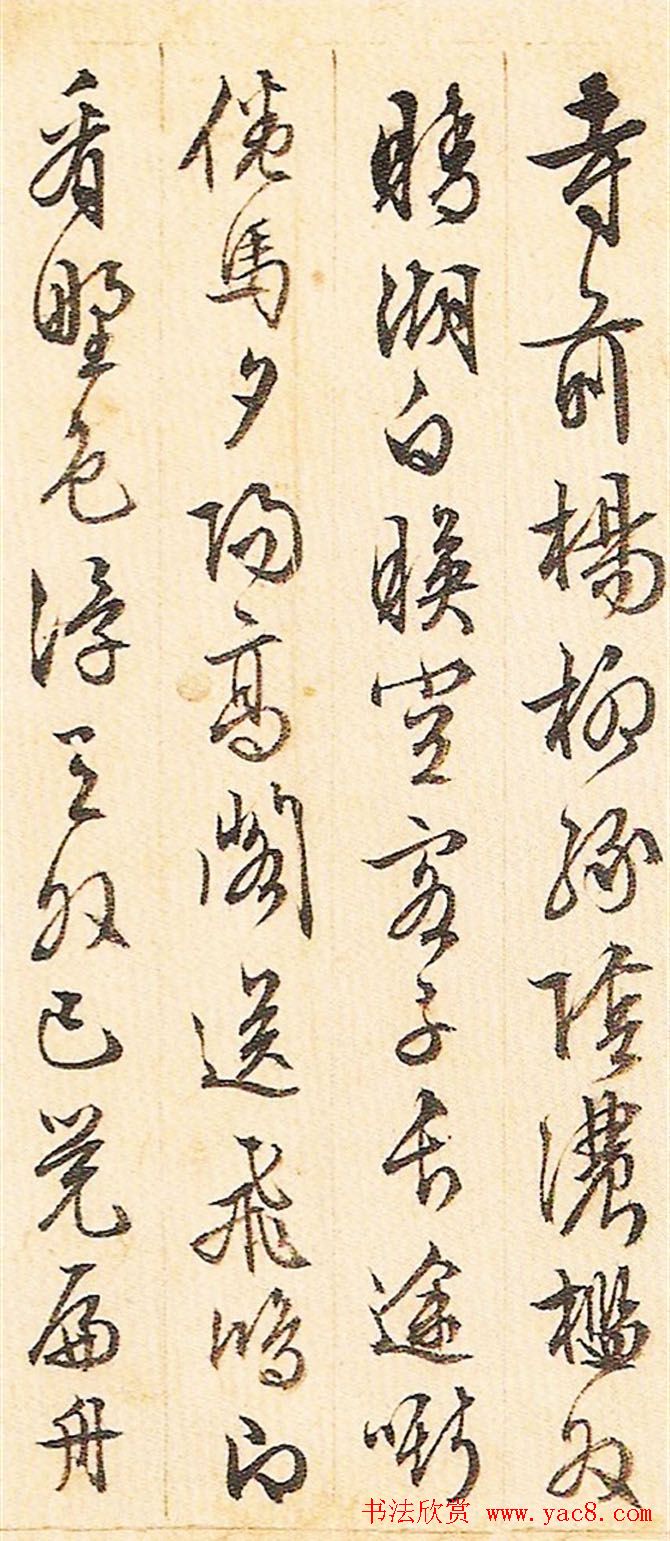 寺前楊柳緑陰濃檻外
晴湖白暎空客子長途嘶
倦馬夕陽高閣送飛鴻即
看野色浮天外已覺扁舟
书法欣赏 www.yac8.com